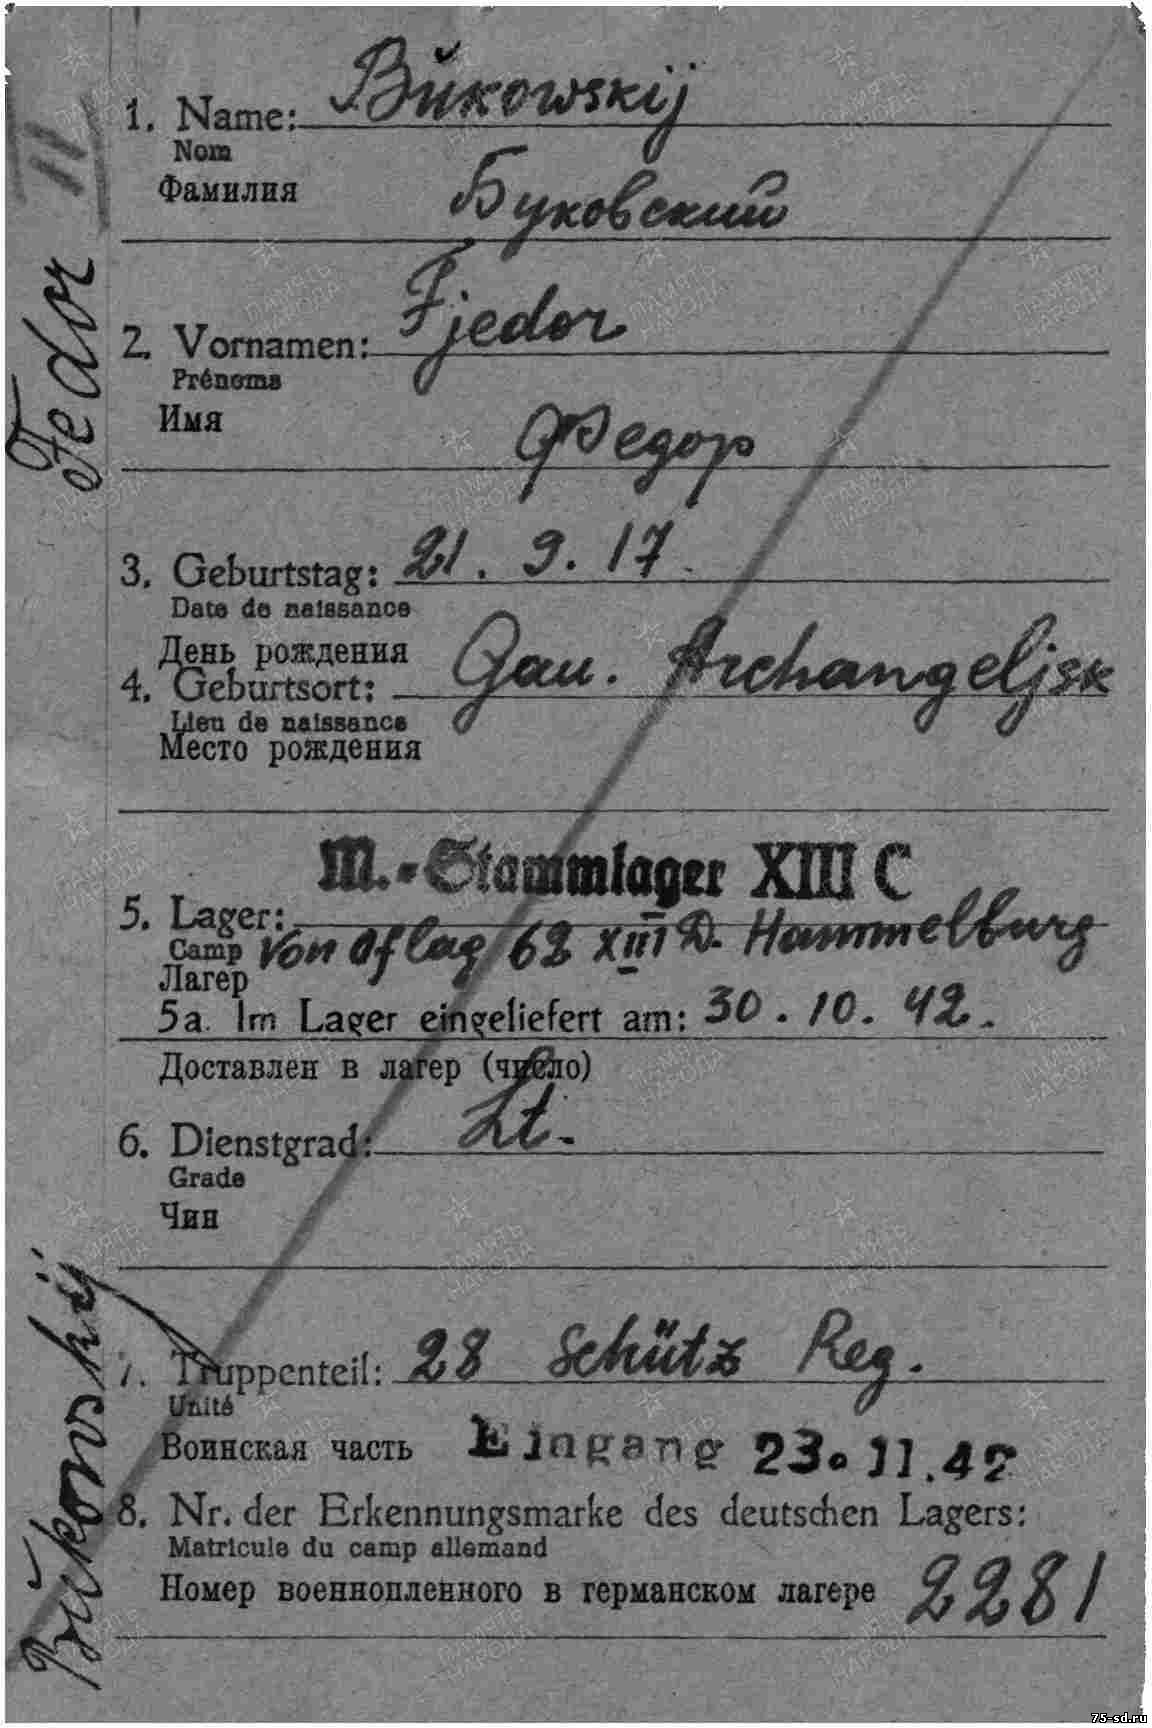 1. Name: Bŭkowskij
Nom
Фамилия
Буковский
2. Vornamen: Fjedor
Prénoms
Имя
Федор
3. Geburtstag: 21. 9. 17.
Date de naissance
День рождения
4. Geburtsort: Gau. Archangeljsk
Lieu de naissance
Место рождения
M.-Stammlager XIII C
5. Lager:
Camp von Oflag 62 XIII D. Hammelburg
Лагер
5a. Im Lager eingeliefert am: 30. 10. 42.
Доставлен в лагер (число)
6. Dienstgrad: Lt.
Grade
Чин
7. Truppenteil: 28 Schütz Reg.
Unité
Воинская часть Eingang 23. 11. 42
8. Nr. der Erkennungsmarke des deutschen Lagers:
Matricule du camp allemand
Номер военнопленного в германском лагере 2281
Bŭkowskij Fedor
ПАМЯТЬ НАРОДА
75-sd.ru